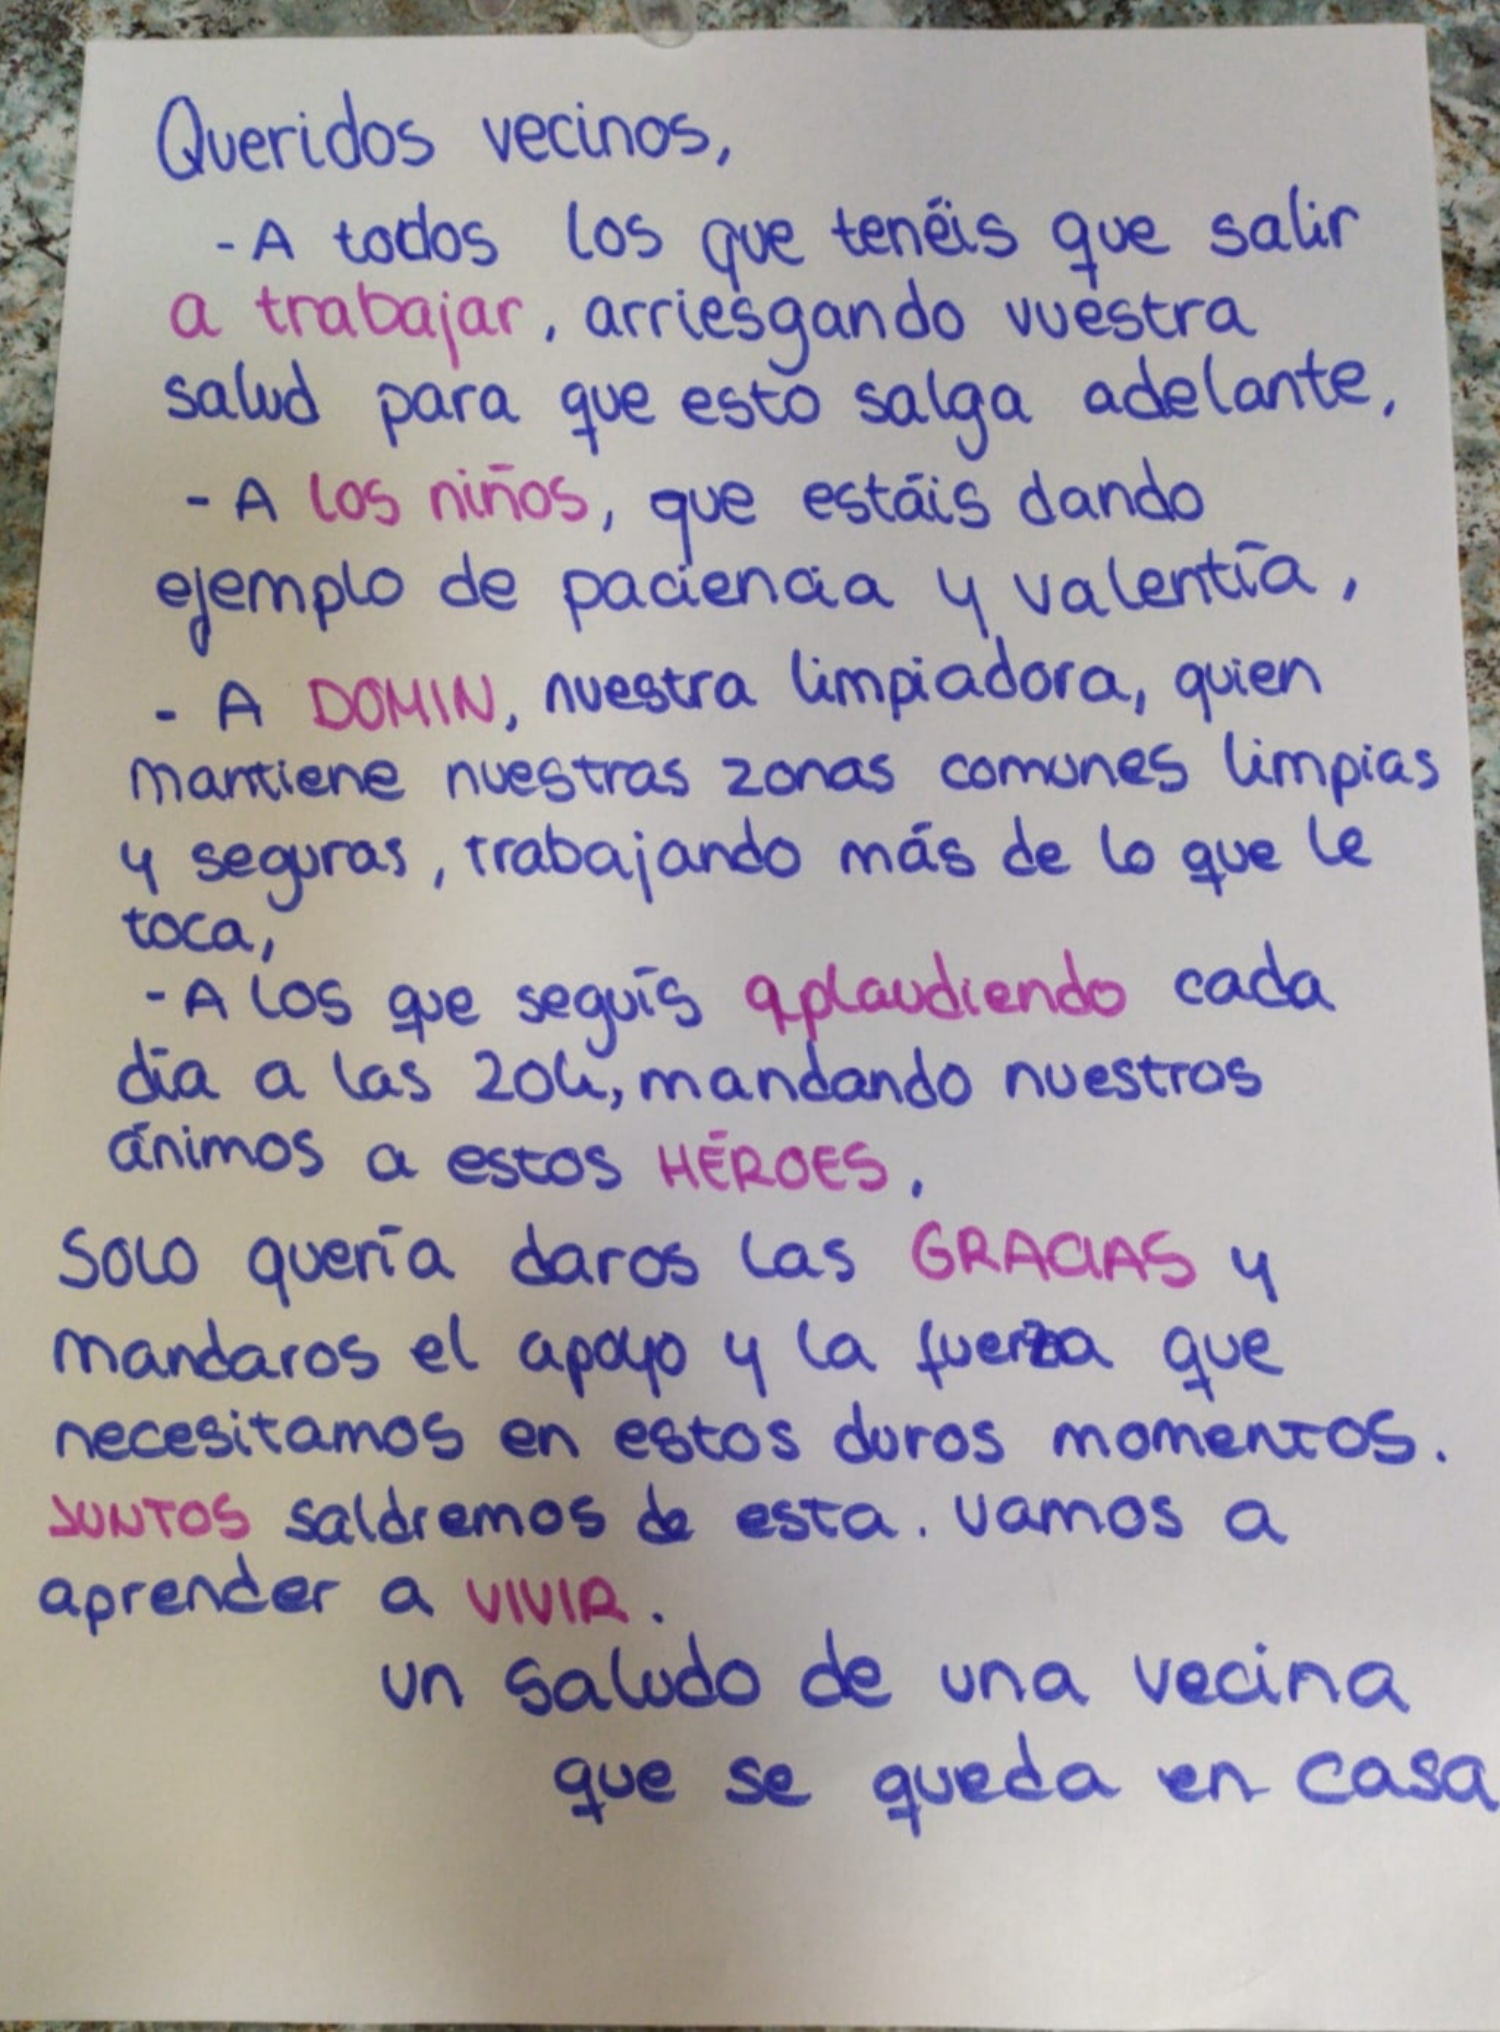 Queridos vecinos,
- A todos los que tenéis que salir
a trabajar, arriesgando vuestra
salud para que esto salga adelante,
- A los niños, que estáis dando
ejemplo de paciencia y valentía,
- A DOMIN, nuestra limpiadora, quien
mantiene nuestras zonas comunes limpias
y seguras, trabajando más de lo que le
toca,
- A los que seguís aplaudiendo cada
día a las 20h, mandando nuestros
ánimos a estos HÉROES,
Solo quería daros las GRACIAS y
mandaros el apoyo y la fuerza que
necesitamos en estos duros momentos.
JUNTOS saldremos de esta. Vamos a
aprender a VIVIR.
Un saludo de una vecina
que se queda en casa